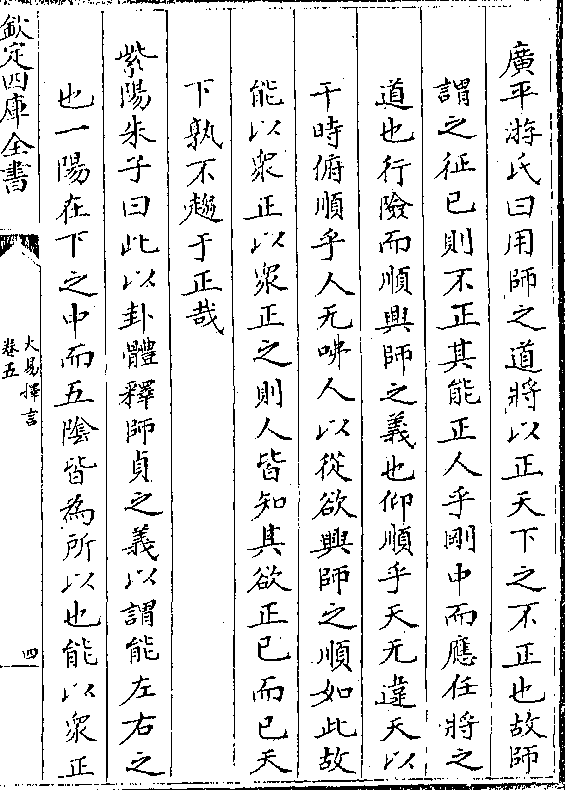 廣平游氏曰用師之道將以正天下之不正也故師
謂之征已則不正其能正人乎剛中而應任將之
道也行險而順興師之義也仰順乎天无違天以
干時俯順乎人无咈人以從欲興師之順如此故
能以衆正以衆正之則人皆知其欲正已而已天
下孰不趨于正哉
紫陽朱子曰此以卦體釋師貞之義以謂能左右之
也一陽在下之中而五陰皆為所以也能以衆正
欽定四庫全書
大易擇言
卷五
四